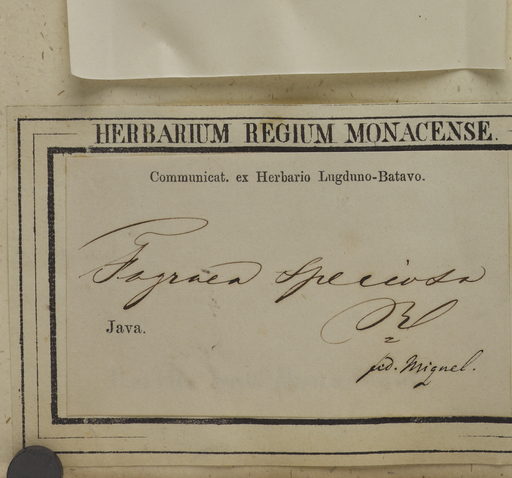 HERBARIUM REGIUM MONACENSE.
Communicat. ex Herbario Lugduno-Batavo.
Fagraea speciosa
Bl
Java.
fid. Miquel.